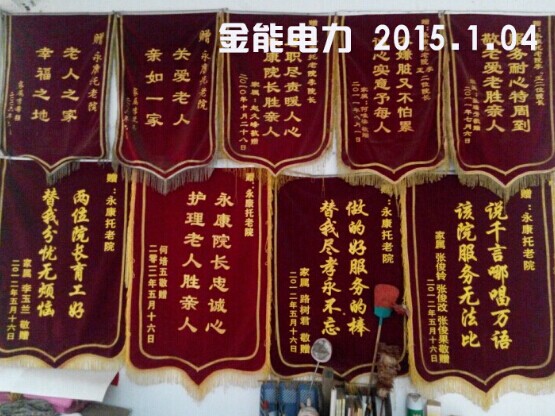 金能电力 2015.1.04
赠 永康老院
老人之家
幸福之地
赠 永康老院
关爱老人
亲如一家
职尽责暖人心
康院长胜亲人
二〇一〇年十月二十八日
嫌脏又不怕累
心实意予每人
务耐心特周到
敬老爱老胜亲人
赠:永康托老院
两位院长育工好
替我分忧无烦恼
家属 李玉兰 敬赠
二〇一二年五月十六日
赠:永康托老院
永康院长忠诚心
护理老人胜亲人
何培五敬赠
二〇一二年五月十六日
赠:永康托老院
做的好服务的棒
替我尽孝永不忘
家属 路树君 敬赠
二〇一二年五月十六日
赠:永康托老院
说千言哪唱万语
该院服务无法比
家属 张俊铃 张俊改 张俊果敬赠
二〇一二年五月十六日